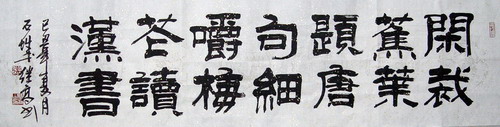 閑裁
蕉葉
題唐
句細
嚼梅
花讀
漢書
己丑年夏月